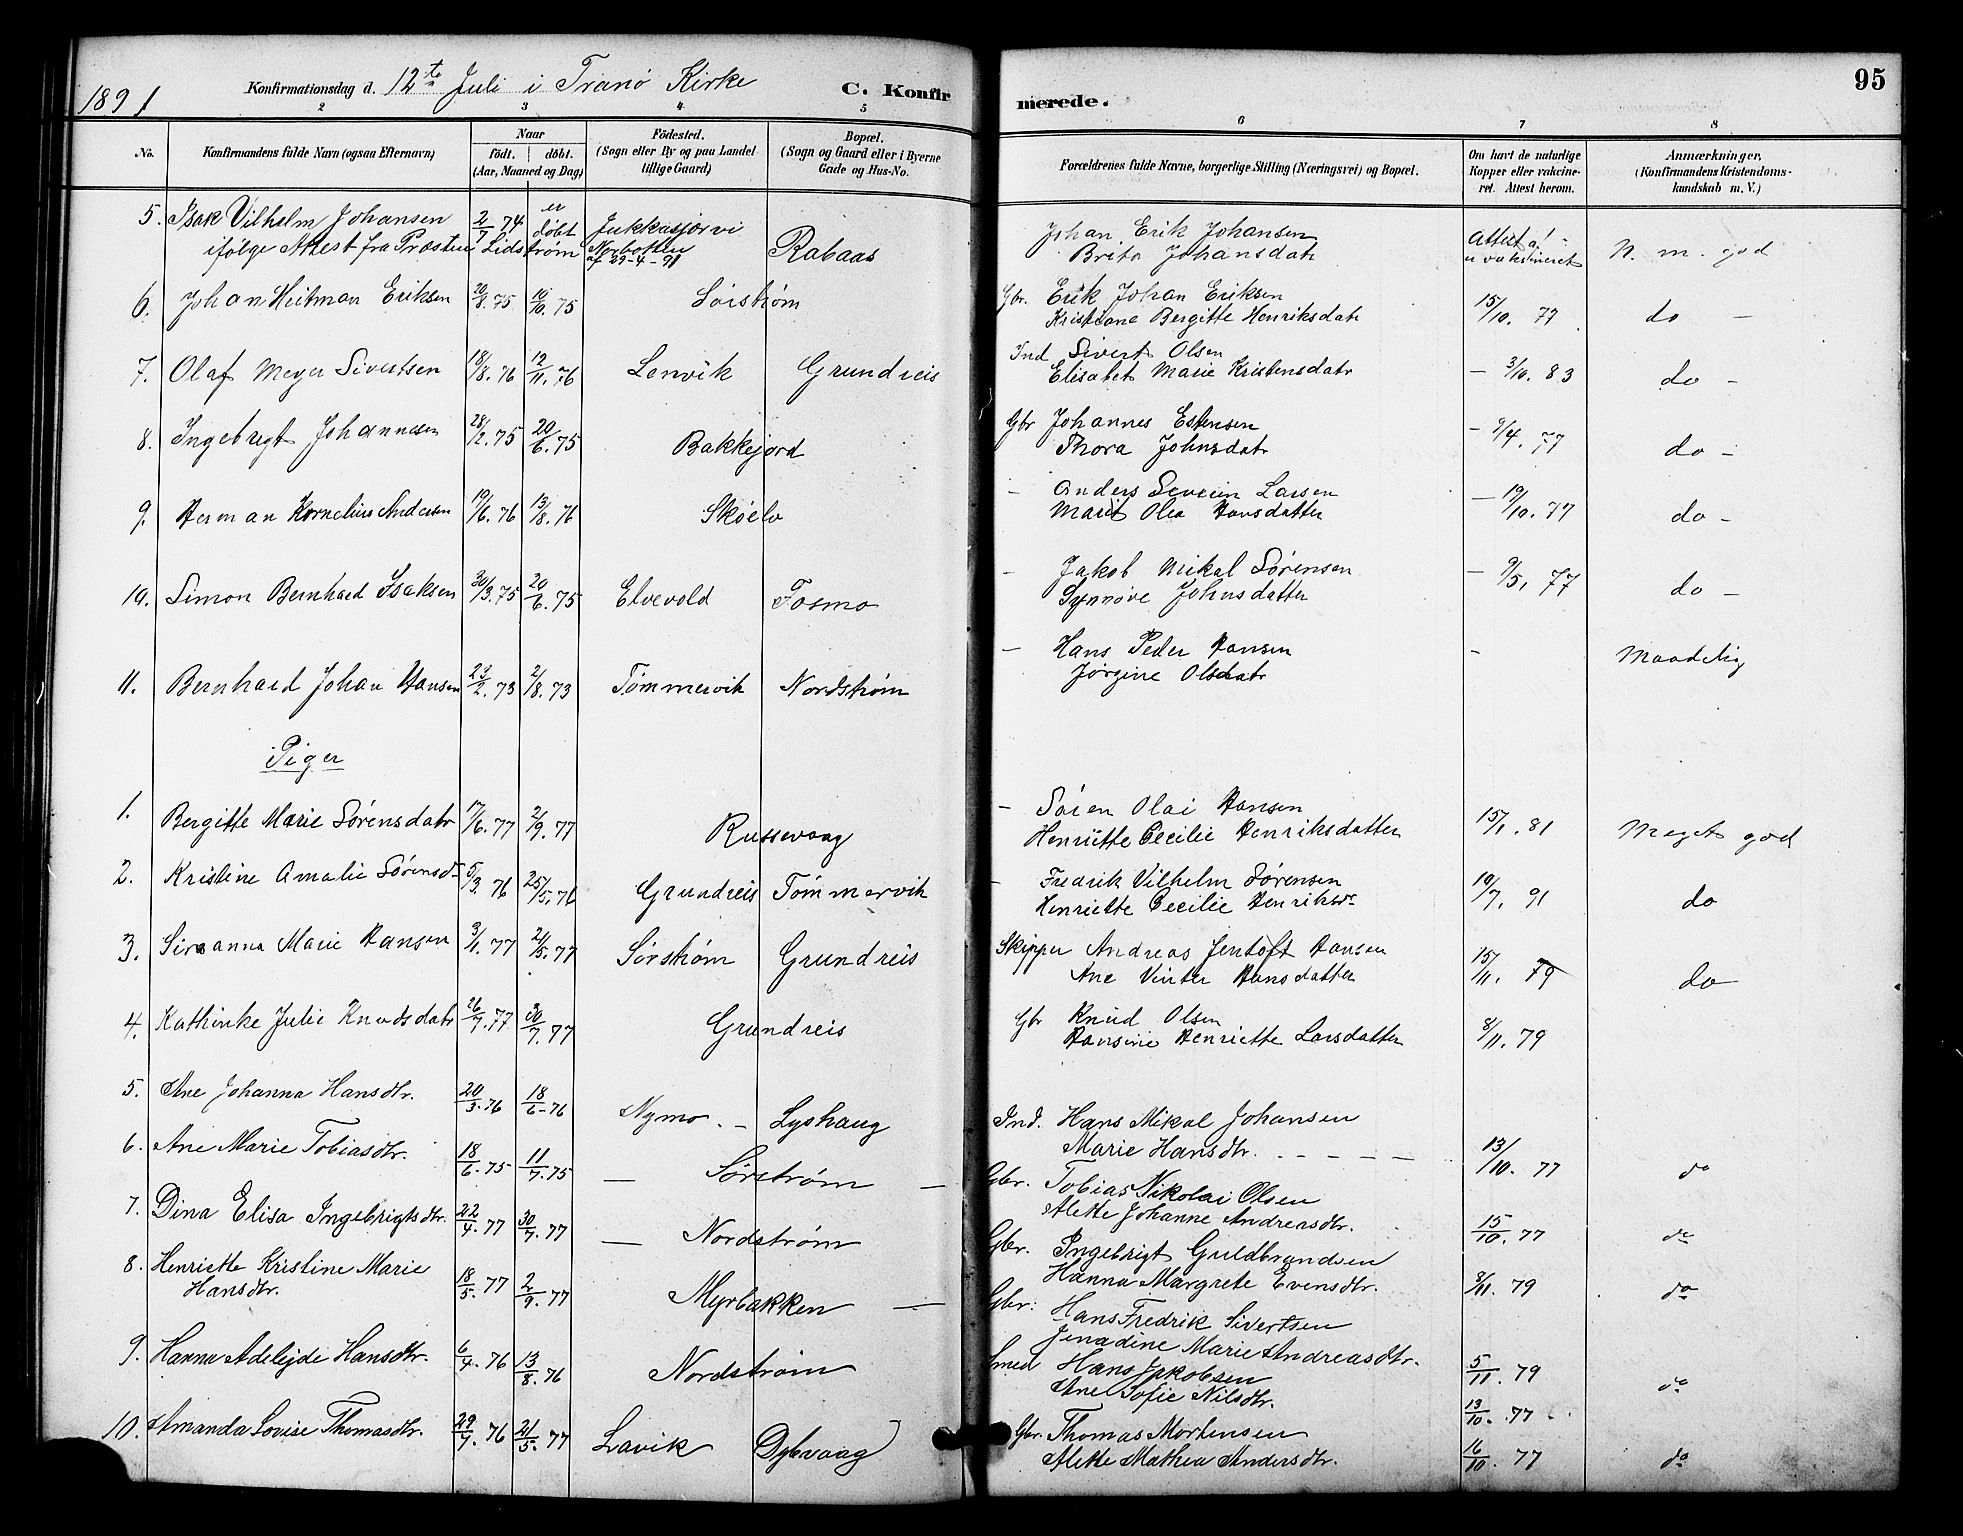 1891 Konfirmationsdag d. 12te Juli i Tranø Kirke C. Konfir
merede. 95
2 3 4 5 6 7 8
No.
Konfirmandens fulde Navn (ogsaa Efternavn)
Naar
födt. | döbt.
(Aar, Maaned og Dag)
Födested.
(Sogn eller By og paa Landet
tillige Gaard)
Bopæl.
(Sogn og Gaard eller i Byerne
Gade og Hus-No.
Forældrenes fulde Navne, borgerlige Stilling (Næringsvei) og Bopæl.
Om havt de naturlige
Kopper eller vakcine-
ret. Attest herom.
Anmærkninger,
(Konfirmandens Kristendoms-
kundskab m. V.)
5. Isak Vilhelm Johansen 2/7 74 er døbt Jukkasjærvi Rabaas Johan Erik Johansen Attest N. m. god
ifölge Attest fra Præsten Lidstrøm Norbotten af 29-4-91 Brita Johansdatr
6. Johan Heitman Eriksen 20/8. 75 10/10. 75 Sørstrøm Gbr. Erik Johan Eriksen 15/10. 77 do -
Kristiane Bergitte Henriksdatr
7. Olaf Meyer Sivertsen 18/8. 76 12/11. 76 Lenvik Grundreis Ind Sivert Olsen - 3/10. 83 do -
Elisabet Marie Kristensdatr
8. Ingebrigt Johannesen 28/2. 75 20/6. 75 Bakkejord Gbr Johannes Estensen - 9/4. 77 do -
Thora Johnsdatr
9. Herman Kornelius Andersen 19/6. 76 13/8. 76 Skøelv - Anders Severin Larsen - 19/10. 77 do -
Marit Olea Hansdatter
10. Simon Bernhard Isaksen 30/3. 75 20/6. 75 Elvevold Fosmo - Jakob Mikal Sørensen - 9/5. 77 do -
Synnøve Johnsdatter
11. Bernhard Johan Hansen 23/2. 73 2/8. 73 Tömmervik Nordstrøm - Hans Peder Hansen - Maadelig
Jørgine Olsdatr
Piger
1. Bergitte Marie Sørensdatr 17/6. 77 2/9. 77 Russevaag - Søren Olai Hansen 15/1. 81 Meget god
Henriette Cecilie Henriksdatter
2. Kristine Amalie Sørensd- 5/3 76 25/5. 76 Grundreis Tömmervik - Fredrik Vilhelm Sørensen 10/7. 91 do
Henriette Cecilie Henriksdr
3. Sirianna Marie Hansen 3/1. 77 21/5. 77 Sørstrøm Grundreis Skipper Andreas Jentoft Hansen 15/11. 79 do
Ane Vinter Hansdatter
4. Kathinke Julie Knudsdatr 26/7. 77 30/7. 77 Grundreis Gbr Knud Olsen 8/11. 79
Hansine Henriette Larsdatter
5. Ane Johanna Hansdtr. 20/3. 76 18/6. 76 Nymo. - Lyshaug Ind. Hans Mikal Johansen
Marie Hansdtr. - - - - - 13/10. 77 do
6. Ane Marie Tobiasdtr. 18/6. 75 11/7. 75 - Sørstrøm - Gbr. Tobias Nikolai Olsen
Alette Johanne Andreasdtr. 15/10. 77 do
7. Dina Elisa Ingebrigtsdtr. 22/4. 77 30/7. 77 - Nordstrøm Gbr. Ingebrigt Guldbrandsen
Hanna Margrete Evensdtr. 8/11. 79 do
8. Henriette Kristine Marie
Hansdtr. 18/5. 77 2/9. 77 Myrbakken - Gbr: Hans Fredrik Sivertsen
Jenadine Marie Andreasdtr.
9. Hanna Adelejde Hansdtr. 6/4. 76 13/8. 76 Nordstrøm Smed Hans Jakobsen 5/11. 79 do
Ane Sofie Nilsdtr. 13/10. 77
10. Amanda Lovise Thomasdtr. 29/7. 76 21/5. 77 Lavik Dybvaag Gbr. Thomas Mortensen
Alette Mathea Andersdtr. 16/10. 77 do